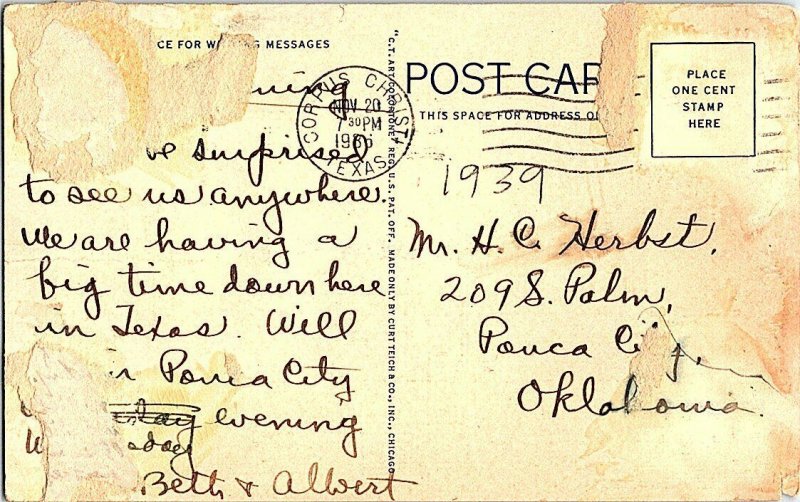 CE FOR W NG MESSAGES
ning
ve surprised
to see us anywhere.
We are having a
big time down here
in Texas. Will
in Ponca City
evening
Beth & Albert
"C.T. ART-COLORTONE" REG. U.S. PAT. OFF. MADE ONLY BY CURT TEICH & CO., INC., CHICAGO
CORPUS CHRISTI
NOV 20
7 30 PM
TEXAS
POST CAR
THIS SPACE FOR ADDRESS O
PLACE
ONE CENT
STAMP
HERE
1939
Mr. H. C. Herbst,
209 S. Palm,
Ponca City,
Oklahoma.